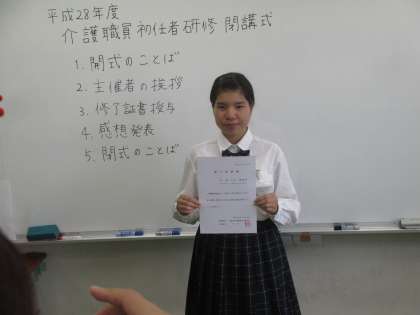 平成28年度
介護職員初任者研修 閉講式
1. 開式のことば
2. 主催者の挨拶
3. 修了証書授与
4. 感想発表
5. 閉式のことば